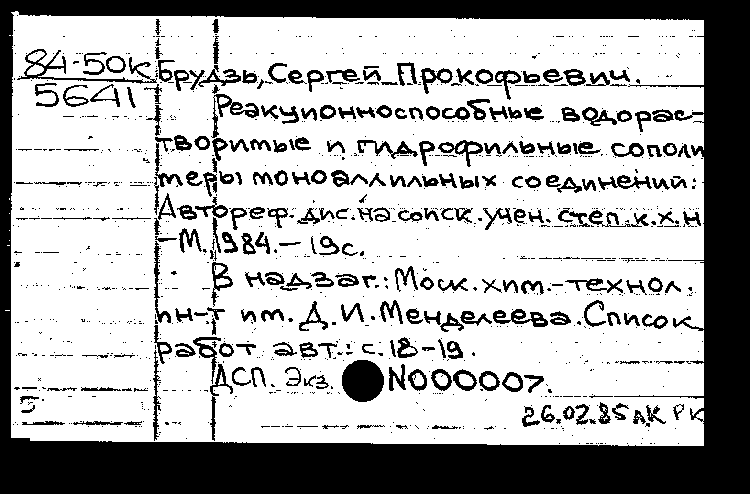 84-50К
5641
Брудзь, Сергей Прокофьевич.
Реакционноспособные водорас-
творимые и гидрофильные сополи
меры моноаллильных соединений:
Автореф. дис. на соиск. учен. степ. к.х.н
-М., 1984.-19с.
В надзаг.: Моск. хим.-технол.
ин-т им. Д.И. Менделеева. Список
работ авт.: с. 18-19.
ДСП. Экз. N000007.
5
26.02.85 АК РК